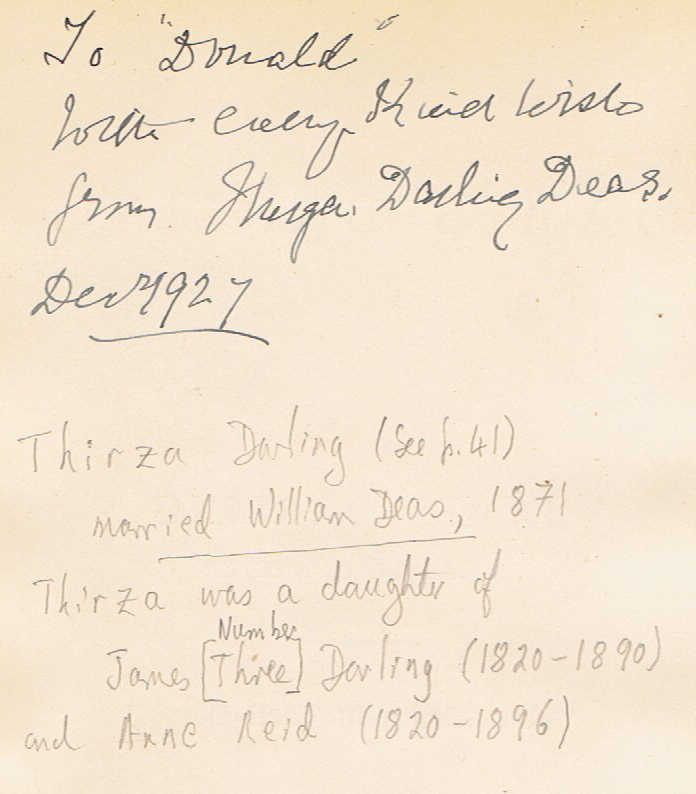 To "Donald"
With every Kind Wish
from Thirza Darling Deas.
Decr 1927
Thirza Darling (See p. 41)
married William Deas, 1871
Thirza was a daughter of
Number
James [Three] Darling (1820-1890)
and Anne Reid (1820-1896)